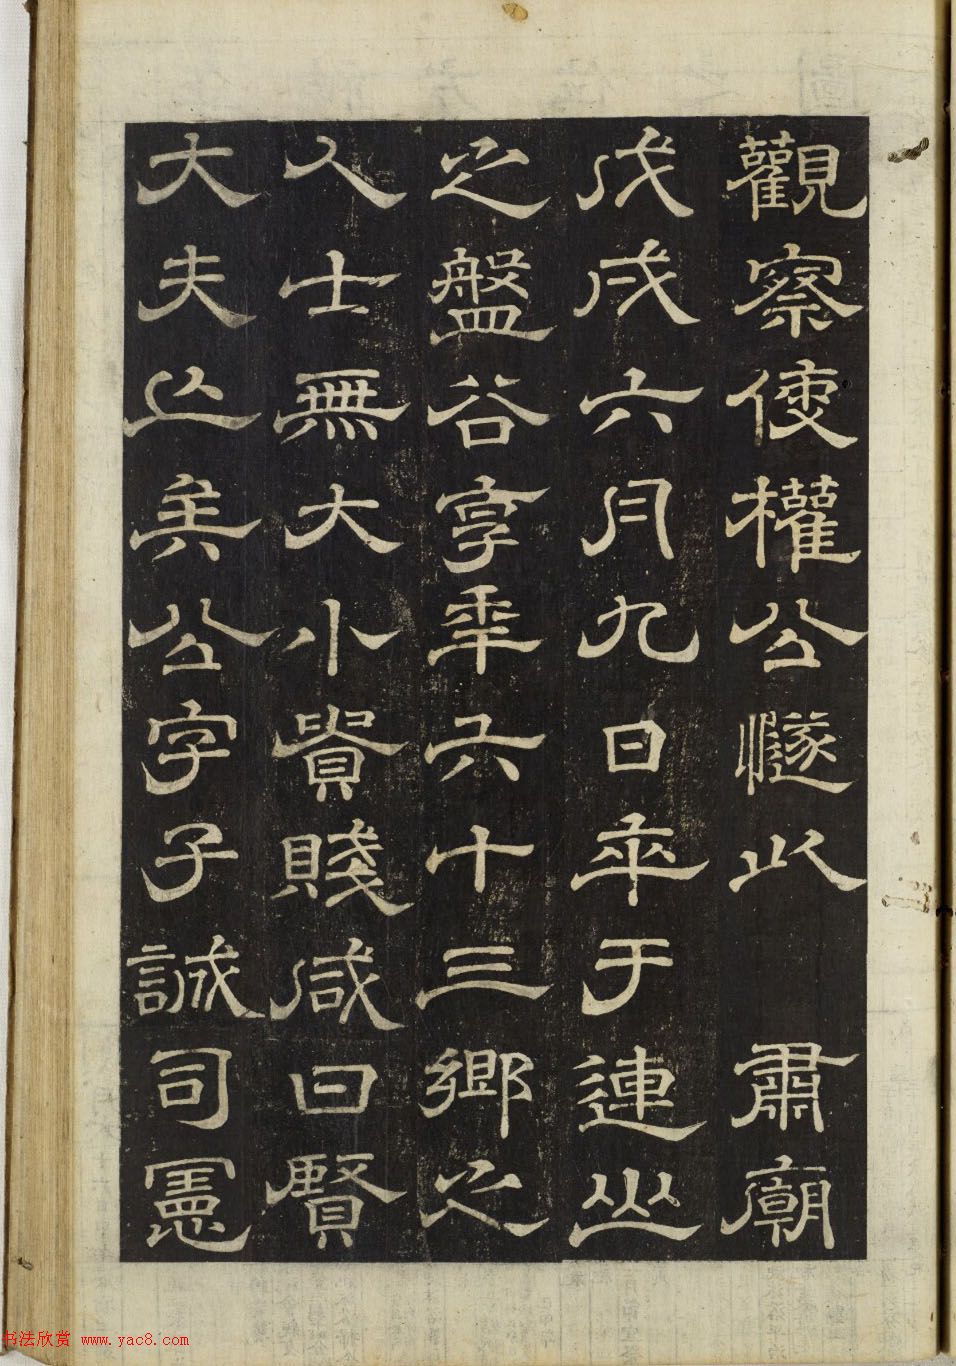 觀察使權公𢢝以 肅廟
戊戌六月九日卒于連山
之盤谷享年六十三鄉之
人士無大小貴賤咸曰賢
大夫亡矣公字子誠司憲
书法欣赏 www.yac8.com